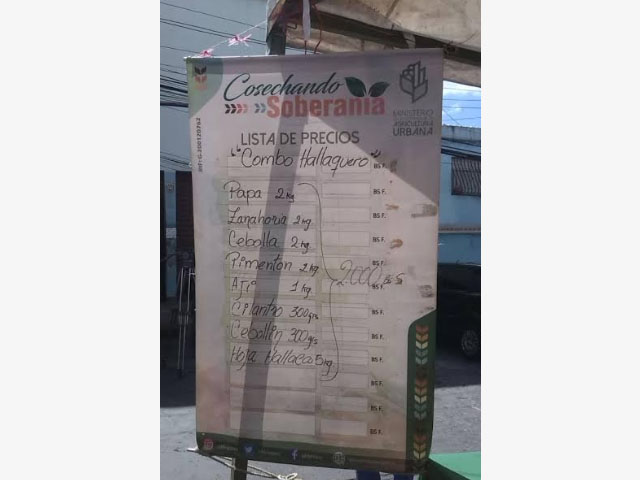 Cosechando
Soberanía
MINISTERIO
AGRICULTURA
URBANA
RIF: G-200120762
LISTA DE PRECIOS
"Combo Hallaquero"
BS F.
Papa 2 kg
BS F.
Zanahoria 2 kg
BS F.
Cebolla 2 kg
BS F.
Pimenton 2 kg
BS F.
Aji 1 kg
2.000 BsS
BS F.
Cilantro 300 grs
BS F.
Cebollin 300 grs
BS F.
Hoja Hallaca 5 kg
BS F.
BS F.
BS F.
BS F.